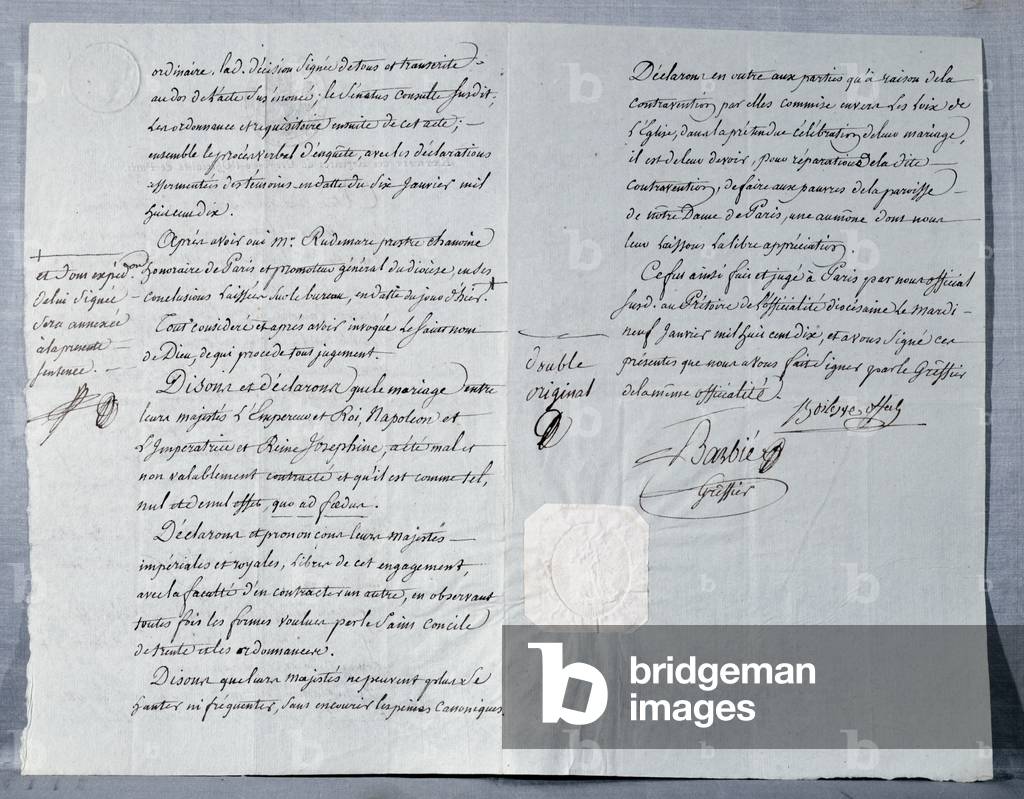 ordinaire, lad. décision signée de tous et transcrite
au dos de l'acte susénoncé; le Sénatus consulte susdit,
les ordonnance et requisitoire ensuite de cet acte; —
ensemble le procès verbal d'enquête, avec les déclarations
assermentées des temoins, en datte du six Janvier mil
huit cent dix.
Après avoir oui Mr. Rudemare prêtre chanoine
honoraire de Paris et promoteur général du diocèse, en ses
conclusions laissées sur le bureau, en datte du jour d'hier. +
Tout considéré et après avoir invoqué le Saint nom
de Dieu, de qui procede tout jugement. —
Disons et déclarons que le mariage entre
leurs majestés l'Empereur et Roi, Napoleon et
l'Imperatrice et Reine Josephine, a été mal et
non valablement contracté et qu'il est comme tel,
nul et de nul effet, quo ad foedus.
Déclarons et prononçons leurs majestés —
impériales et royales, libres de cet engagement,
avec la faculté d'en contracter un autre, en observant
toutes fois les formes voulues par le Saint Concile
de trente et les ordonnances.
Disons que leurs majestés ne peuvent plus se
hanter ni fréquenter, sans encourir les peines canoniques.
+
et dont expédon
de lui signée —
sera annexée
à la presente —
sentence. —
Déclarons en outre aux parties qu'à raison de la
contravention par elles commise envers les loix de
l'Eglise, dans la prétendue célébration de leur mariage,
il est de leur devoir, pour réparation de la dite —
contravention, de faire aux pauvres de la paroisse —
de nôtre Dame de Paris, une aumône dont nous
leur laissons la libre appréciation.
Ce fut ainsi fait et jugé à Paris par nous official
susd. au Prétoire de l'officialité diocésaine le mardi —
neuf Janvier mil huit cent dix, et avons signé ces
présentes que nous avons fait signer par le Greffier
de la même officialité.
double
original
Boilesve, offal
Barbié
Greffier
b bridgeman
images